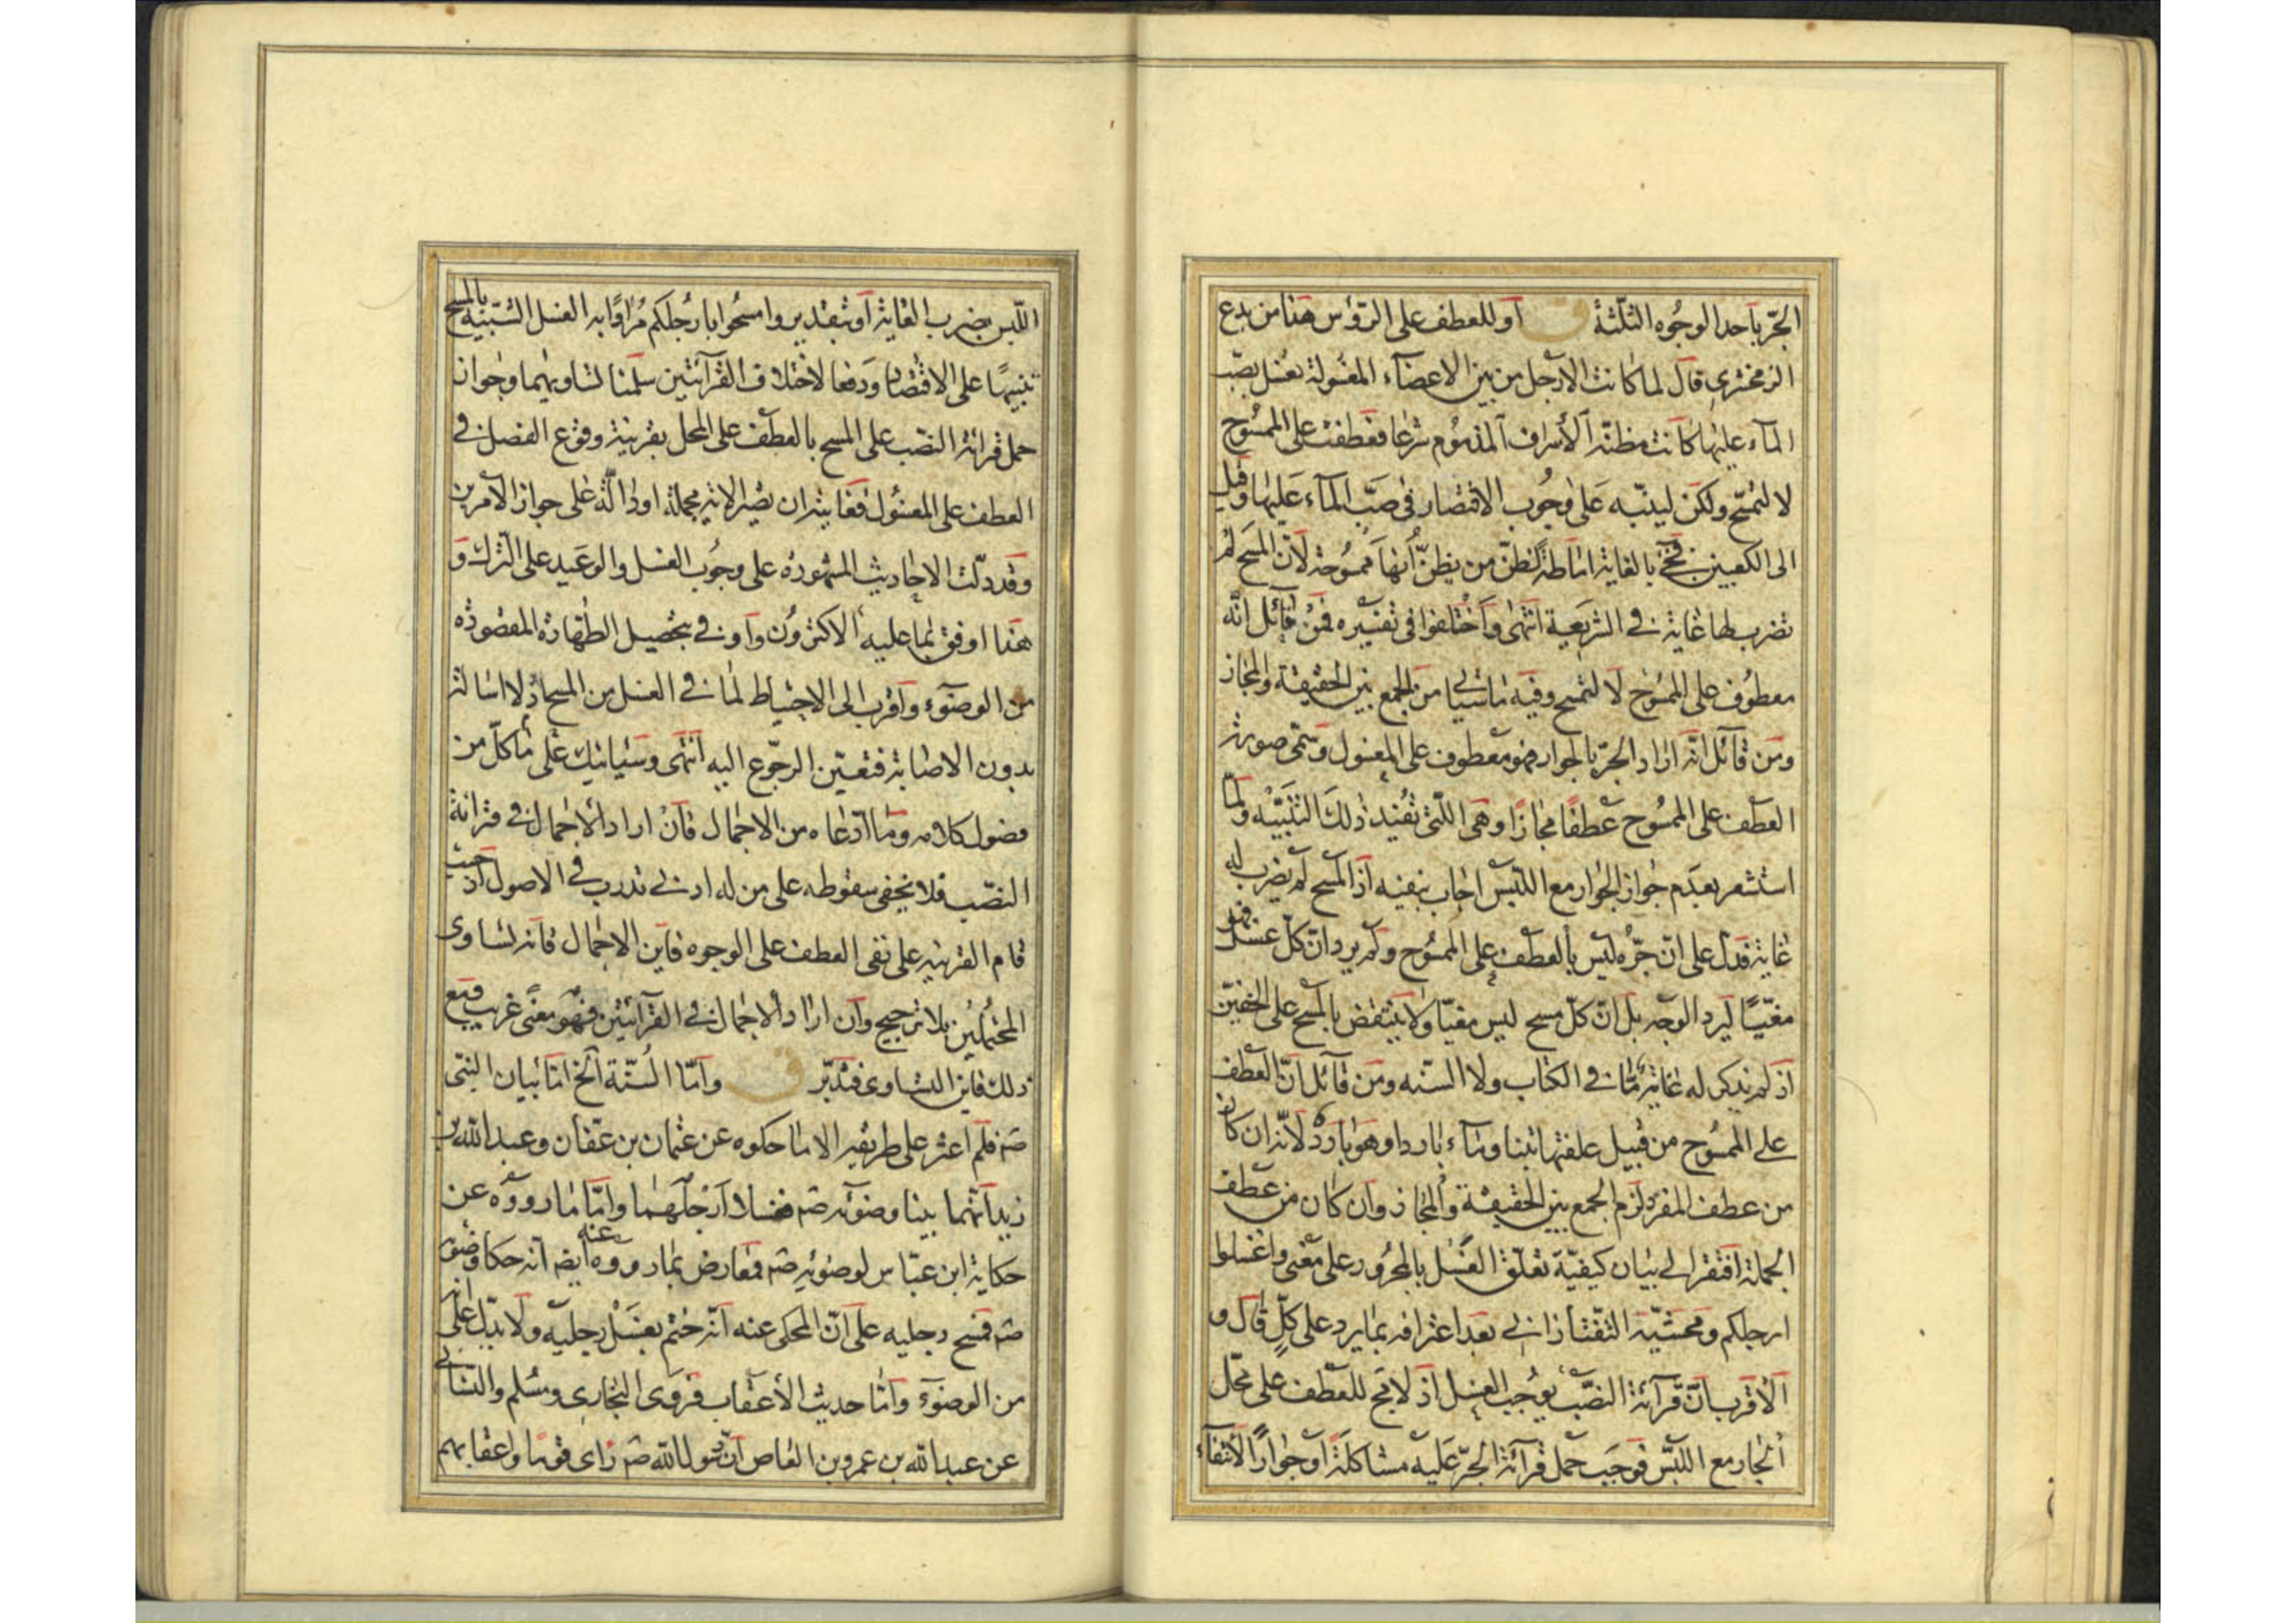 الجرّ بأحد الوجوه الثلثة ق أو للعطف على الرؤس هنا من بدع
الزمخشري قال لما كانت الأرجل من بين الأعضاء المغسولة تغسل بصبّ
الماء عليها كانت مظنة الأسراف المذموم شرعا فعطفت على الممسوح
لا لتمسح ولكن لينبّه على وجوب الاقتصار في صبّ الماء عليها وقيل
الى الكعبين فجئ بالغاية اماطة لظنّ من يظنّ أنها ممسوحة لأنّ المسح لم
تضرب لها غاية في الشريعة انتهى واختلفوا في تفسيره فمن قائل انّه
معطوف على الممسوح لا لتمسح وفيه ما سيأتي من الجمع بين الحقيقة والمجاز
ومن قائل انّه اراد الجرّ بالجوار فهو معطوف على المغسول وسمّى صورته
العطف على الممسوح عطفا مجازا وهي اللّتي تفيد ذلك التنبيه ولمّا
استشعر بعدم جواز الجوار مع اللبس اجاب بنفيه اذ المسح لم يضرب له
غاية فدلّ على انّ جرّه ليس بالعطف على الممسوح ولم يرد انّ كلّ غسل فهو
مغيّيا ليرد الوجه بل انّ كلّ مسح ليس مغيّا ولا ينتقض بالمسح على الخفّين
اذ لم يذكر له غاية مّا في الكتاب ولا السنّه ومن قائل انّ العطف
على الممسوح من قبيل علفتها تبنا وماء باردا وهو بارد لأنّه ان كان
من عطف المفرد لزم الجمع بين الحقيقة والمجاز وان كان من عطف
الجملة افتقر الى بيان كيفيّة تعلّق الغسل بالمجرور على معنى واغسلوا
ارجلكم ومحشيّه التفتازاني بعد اعترافه بما يرد على كلّ قال و
الأقرب انّ قرآئة النصب يوجب الغسل اذ لا يصح للعطف على محلّ
الجار مع اللبس فوجب حمل قرآئة الجرّ عليه مشاكلة او جوارا لانتفاء
اللّبس بضرب الغاية أو بتقدير وامسحوا بأرجلكم مرادا به الغسل الشبيه بالمسح
تنبيها على الاقتصار ودفعا لاختلاف القرآئتين سلمنا تساويهما وجواز
حمل قرائة النصب على المسح بالعطف على المحل بقرينة وقوع الفصل في
العطف على المغسول فغايته ان تصير الاية مجملة او دالّة على جواز الأمرين
وقد دلّت الاحاديث المشهورة على وجوب الغسل والوعيد على الترك و
هذا اوفق بما عليه الأكثرون واوفى بتحصيل الطهارة المقصودة
من الوضوء وأقرب الى الاحتياط لما في الغسل من المسح اذ لا اسالة
بدون الاصابة فتعيّن الرجوع اليه انتهى وسيأتيك على ما كلّ من
فضول كلامه وما ادّعاه من الاجمال فأن اراد الأجمال في قرائة
النصب فلا يخفى سقوطه على من له ادنى تدرب في الاصول اذ حيث
قام القرينه على نفي العطف على الوجوه فأين الاجمال فأنه تساوى
المحتملين بلا ترجيح وان اراد الاجمال في القرآئتين فهو معنى غريب فمع
ذلك فاين التساوي فتدبّر ق وأمّا السنّة الخ امّا بيان النبي
صم فلم اعثر على طريقه الا ما حكوه عن عثمان بن عفان وعبد الله بن
زيد انّهما بينا وضوئه صم فغسلا ارجلهما وامّا ما رووه عن
حكاية ابن عبّاس لوضوئه صم فمعارض بما رووه عنه أيضا انّه حكا وضوئه
صم فمسح رجليه على انّ المحكي عنه انّه ختم بغسل رجليه ولا يدلّ على انه
من الوضوء وامّا حديث الأعقاب فروى البخاري ومسلم والنسائي
عن عبد الله بن عمرو بن العاص انّ رسول الله صم رأى قوما واعقابهم